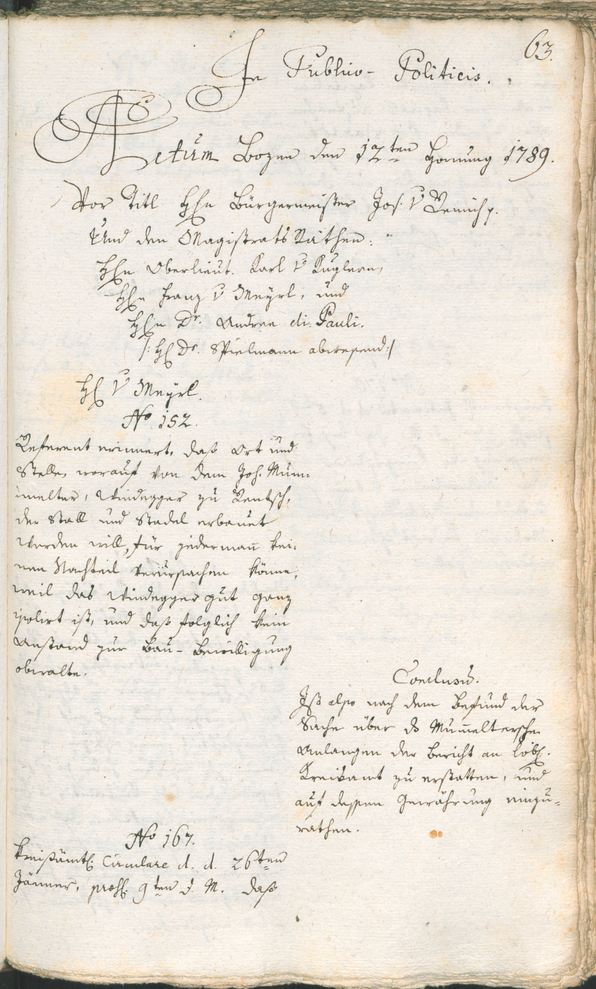 63.
In Publico-Politicis.
Actum Bozen den 12ten Hornung 1789.
Vor Titl Hhn Bürgermeister Jos: v Remich p.
Und den Magistrats Räthen:
Hhn Oberlieut. Karl v Kuglern,
Hhn Franz v Meyrl, und
Hhn Dr. Andree di Pauli.
/: H Dr. Spielmann abwesend :/
H v Meyrl.
No 152.
Referent erinnert, daß Ort und
Stelle, worauf von dem Joh. Mum
melter, Windegger zu Rentsch,
der Stall und Stadel erbauet
werden will, für jederman kei-
nen Nachteil verursachen könne,
weil das Windeggergut ganz
isolirt ist, und daß folglich kein
Anstand zur Bau-Bewilligung
obwalte.
Conclusum.
Ist also nach dem Befund der
Sache über ds Mumelterschen
Anlangen der Bericht an löbl.
Kreisamt zu erstatten, und
auf dessen Gewährung einzu-
rathen.
No 167.
Kreisämtl. Circulare d. d. 26ten
Jänner, præs. 9ten d. M. daß